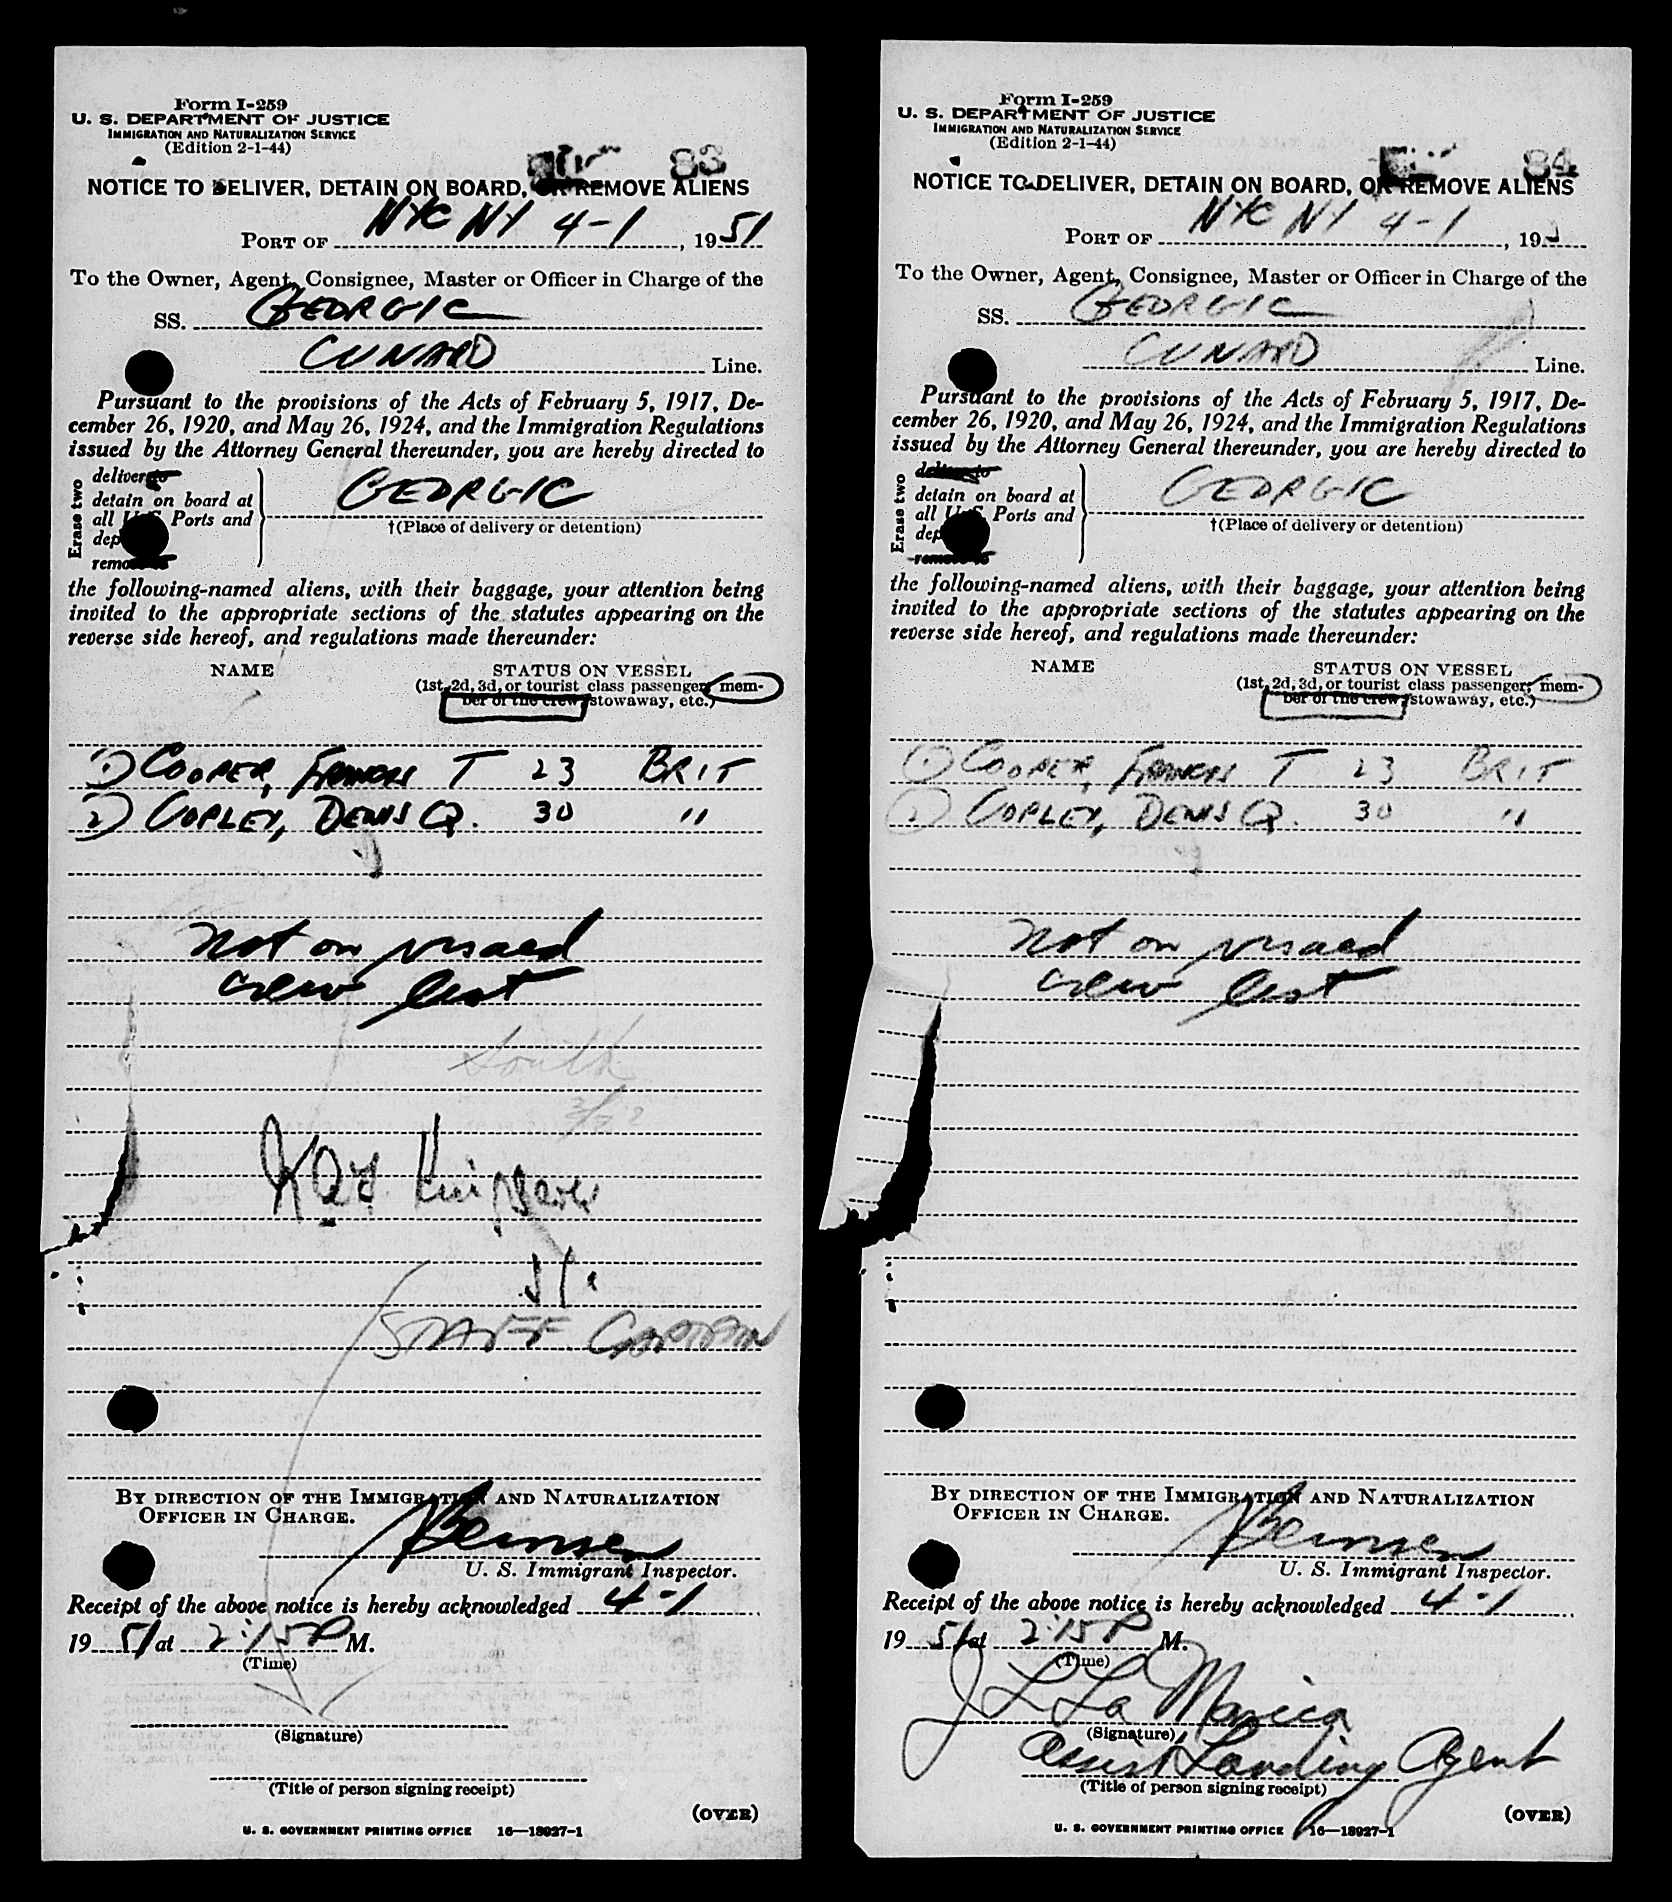 Form I-259
U. S. DEPARTMENT OF JUSTICE
IMMIGRATION AND NATURALIZATION SERVICE
(Edition 2-1-44)
83
NOTICE TO DELIVER, DETAIN ON BOARD, OR REMOVE ALIENS
PORT OF NYC NY 4-1, 1951
To the Owner, Agent, Consignee, Master or Officer in Charge of the
SS. GEORGIC
CUNARD Line.
Pursuant to the provisions of the Acts of February 5, 1917, De-
cember 26, 1920, and May 26, 1924, and the Immigration Regulations
issued by the Attorney General thereunder, you are hereby directed to
Erase two
deliver to
detain on board at
all U. S. Ports and
dep
remove to
GEORGIC
†(Place of delivery or detention)
the following-named aliens, with their baggage, your attention being
invited to the appropriate sections of the statutes appearing on the
reverse side hereof, and regulations made thereunder:
NAME STATUS ON VESSEL
(1st, 2d, 3d, or tourist class passenger, mem-
ber of the crew, stowaway, etc.)
1) COOPER, FRANCIS T 23 BRIT
2) COPLEY, DENIS Q. 30 "
Not on visaed
crew list
South
STAFF CAPTAIN
BY DIRECTION OF THE IMMIGRATION AND NATURALIZATION
OFFICER IN CHARGE.
U. S. Immigrant Inspector.
Receipt of the above notice is hereby acknowledged 4-1
1951 at 2:15 P M.
(Time)
(Signature)
(Title of person signing receipt)
(OVER)
U. S. GOVERNMENT PRINTING OFFICE 16—18027-1
Form I-259
U. S. DEPARTMENT OF JUSTICE
IMMIGRATION AND NATURALIZATION SERVICE
(Edition 2-1-44)
84
NOTICE TO DELIVER, DETAIN ON BOARD, OR REMOVE ALIENS
PORT OF NYC NY 4-1, 19
To the Owner, Agent, Consignee, Master or Officer in Charge of the
SS. GEORGIC
CUNARD Line.
Pursuant to the provisions of the Acts of February 5, 1917, De-
cember 26, 1920, and May 26, 1924, and the Immigration Regulations
issued by the Attorney General thereunder, you are hereby directed to
Erase two
deliver to
detain on board at
all U. S. Ports and
dep
remove to
GEORGIC
†(Place of delivery or detention)
the following-named aliens, with their baggage, your attention being
invited to the appropriate sections of the statutes appearing on the
reverse side hereof, and regulations made thereunder:
NAME STATUS ON VESSEL
(1st, 2d, 3d, or tourist class passenger, mem-
ber of the crew, stowaway, etc.)
1) COOPER, FRANCIS T 23 BRIT
2) COPLEY, DENIS Q. 30 "
Not on visaed
crew list
BY DIRECTION OF THE IMMIGRATION AND NATURALIZATION
OFFICER IN CHARGE.
U. S. Immigrant Inspector.
Receipt of the above notice is hereby acknowledged 4-1
1951 at 2:15 P M.
(Time)
J L La Marica
(Signature)
Assist Landing Agent
(Title of person signing receipt)
(OVER)
U. S. GOVERNMENT PRINTING OFFICE 16—18027-1